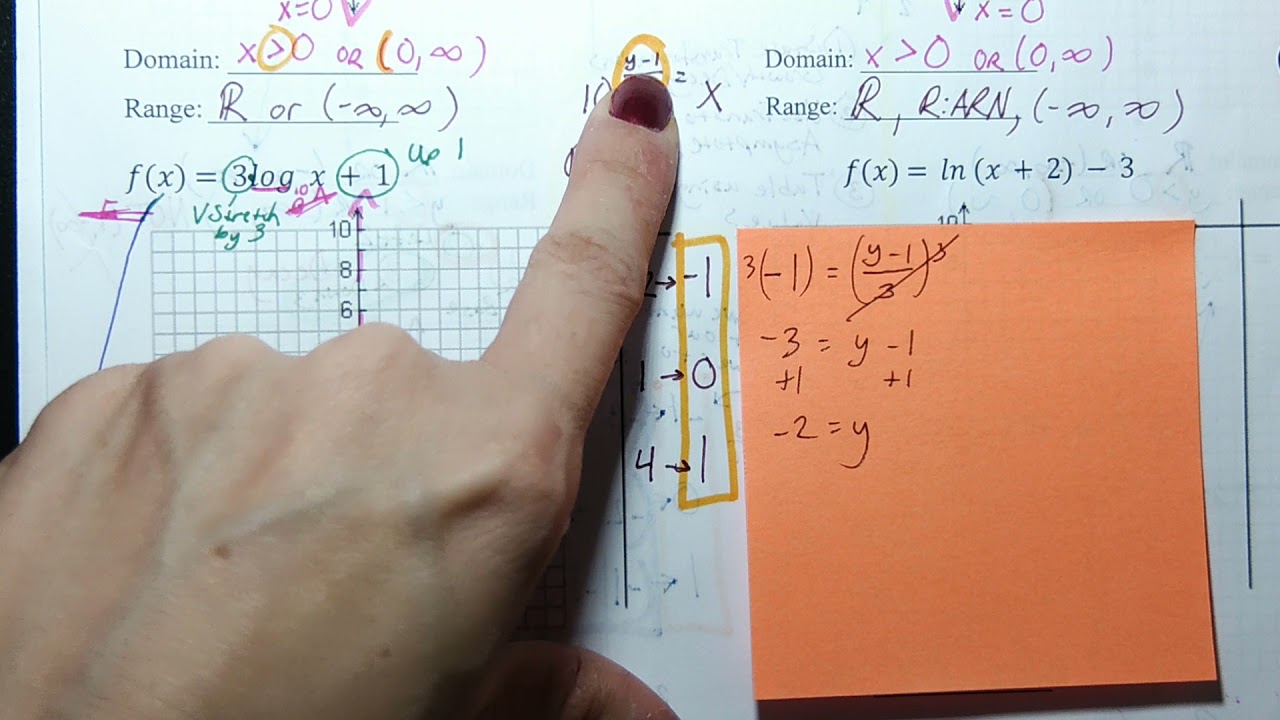 x=0
Domain: x > 0 OR (0, ∞)
Range: ℝ or (-∞, ∞)
f(x) = 3log x + 1
up 1
VStretch
by 3
10
8
6
y-1
10 = x
→ -1
1 → 0
4 → 1
x=0
Domain: x > 0 OR (0, ∞)
Range: ℝ, R:ARN, (-∞, ∞)
f(x) = ln (x + 2) − 3
10
3(-1) = (y-1/3)3
-3 = y -1
+1 +1
-2 = y